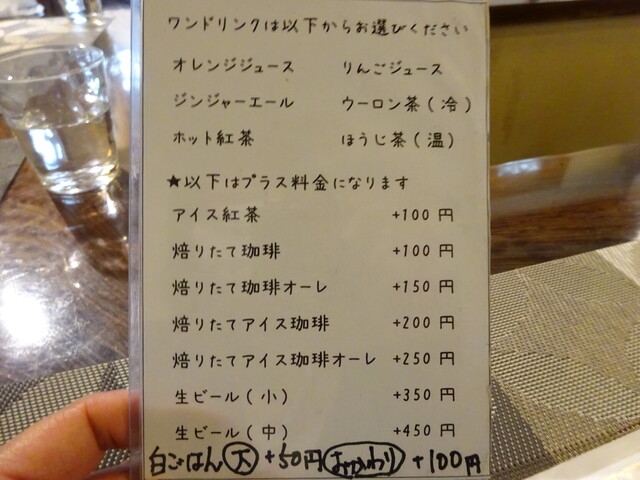 ワンドリンクは以下からお選びください
オレンジジュース りんごジュース
ジンジャーエール ウーロン茶(冷)
ホット紅茶 ほうじ茶(温)
★以下はプラス料金になります
アイス紅茶 +100円
焙りたて珈琲 +100円
焙りたて珈琲オーレ +150円
焙りたてアイス珈琲 +200円
焙りたてアイス珈琲オーレ +250円
生ビール(小) +350円
生ビール(中) +450円
白ごはん 大 +50円 おかわり +100円